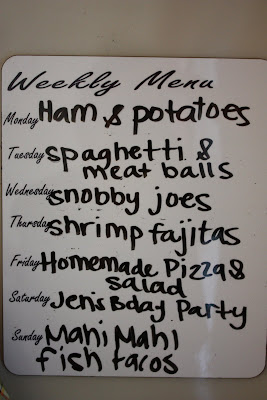 Weekly Menu
Monday Ham & potatoes
Tuesday spaghetti &
meat balls
Wednesday snobby joes
Thursday shrimp fajitas
Friday Homemade Pizza &
salad
Saturday Jen's Bday Party
Sunday Mahi Mahi
fish tacos